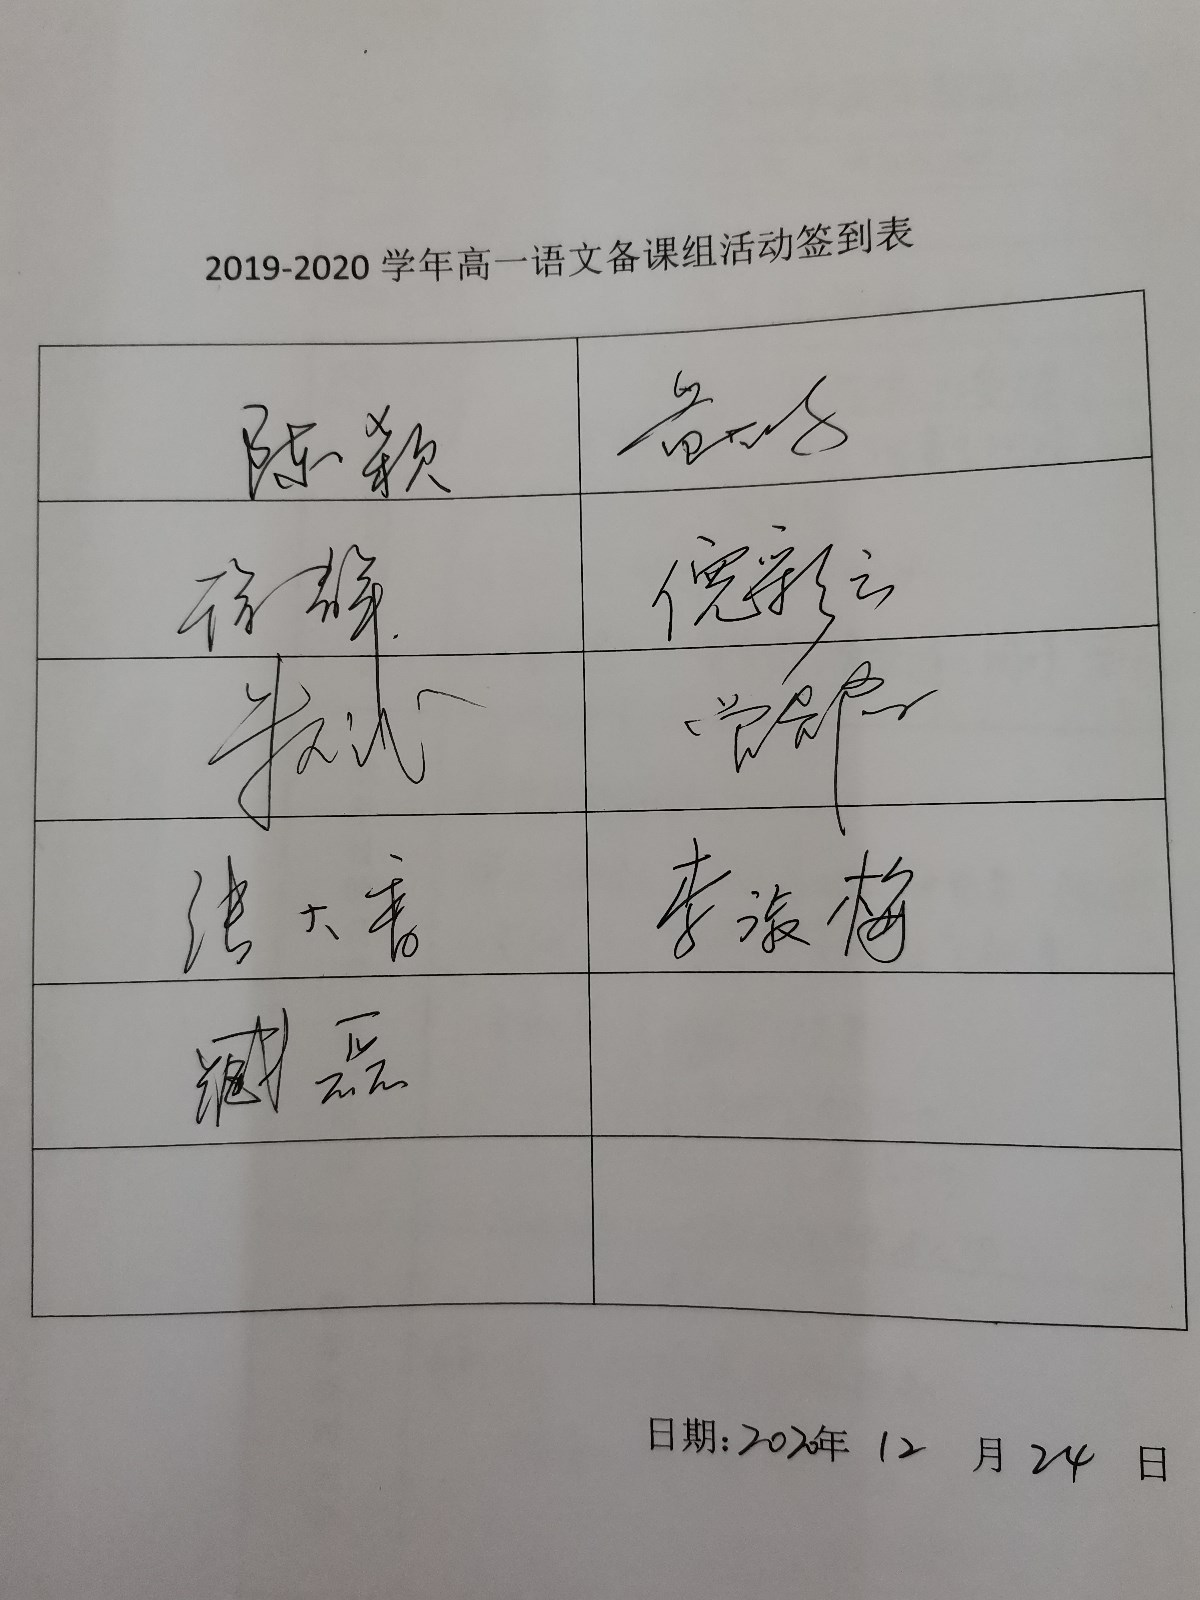 2019-2020 学年高一语文备课组活动签到表
陈颖
徐静 倪彩云
张大香 李淑梅
臧磊
日期:2020年 12 月 24 日